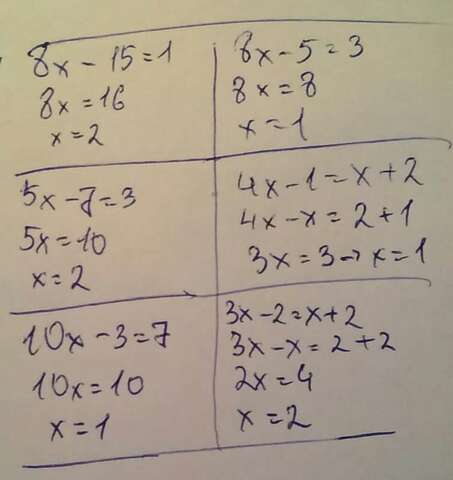 8x - 15 = 1
8x = 16
x = 2
8x - 5 = 3
8x = 8
x = 1
5x - 7 = 3
5x = 10
x = 2
4x - 1 = x + 2
4x - x = 2 + 1
3x = 3 → x = 1
10x - 3 = 7
10x = 10
x = 1
3x - 2 = x + 2
3x - x = 2 + 2
2x = 4
x = 2